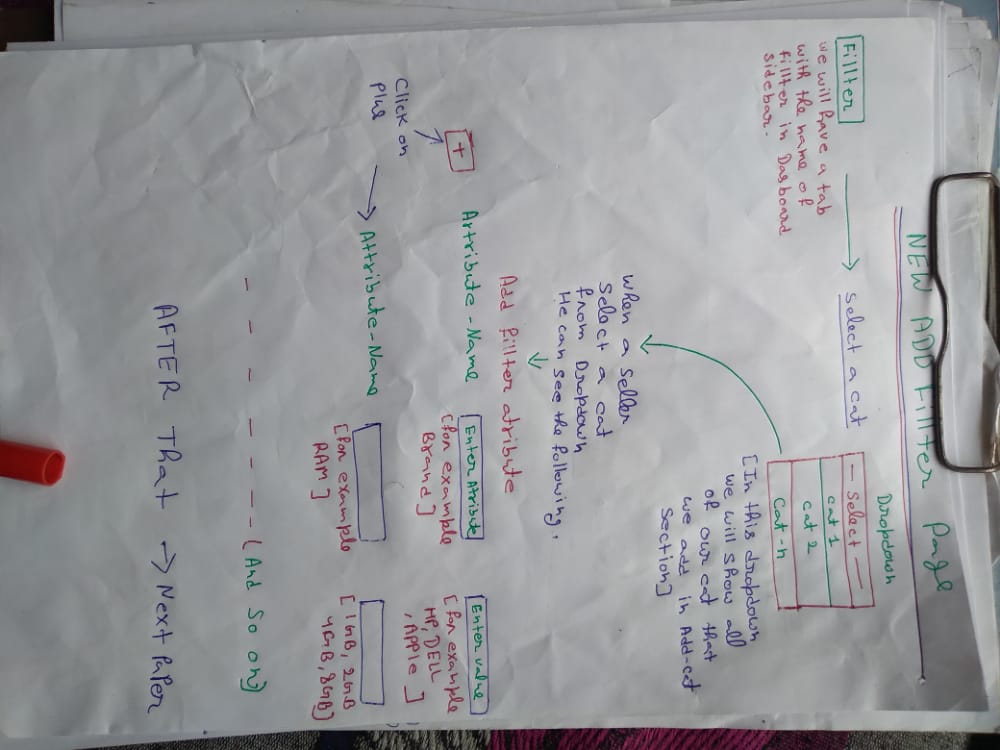 NEW ADD Fillter Page
Fillter
We will have a tab
with the name of
Fillter in Dasboard
Sidebar.
Select a cat
Dropdown
— Select —
cat 1
cat 2
Cat-n
[In this dropdown
we will show all
of our cat that
we add in Add-cat
Section]
When a seller
Select a cat
from Dropdown
He can see the following.
Add fillter atribute
+
Artribute-Name
Enter Atribute
[for example
Brand]
Enter value
[for example
HP, DELL
, APPLE ]
Click on
plus
Attribute-Name
[for example
RAM]
[1GB, 2GB
4GB, 8GB]
- - - - - - - (And So on)
AFTER That → Next Paper